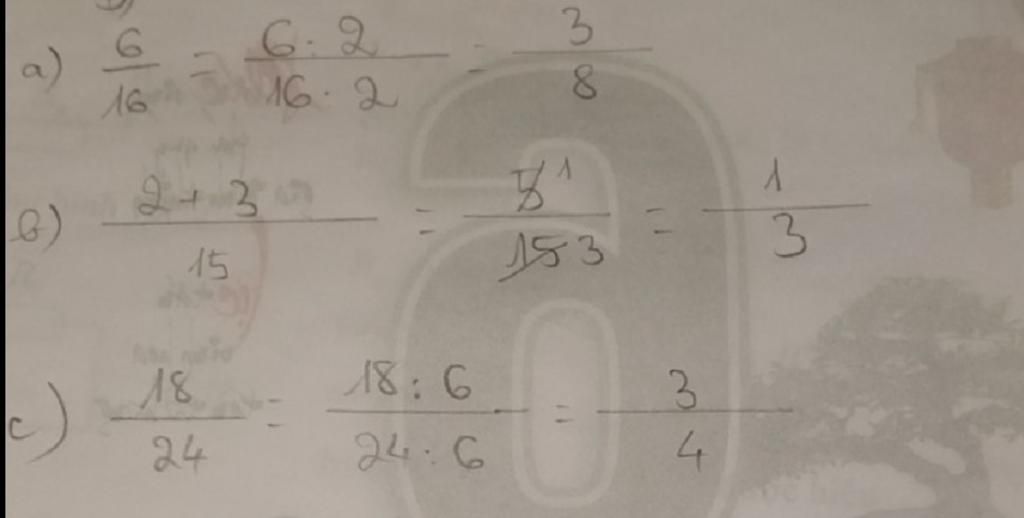 a) 6/16 = 6 : 2/16 : 2 = 3/8
b) 2 + 3/15 = 5 1/15 3 = 1/3
c) 18/24 = 18 : 6/24 : 6 = 3/4